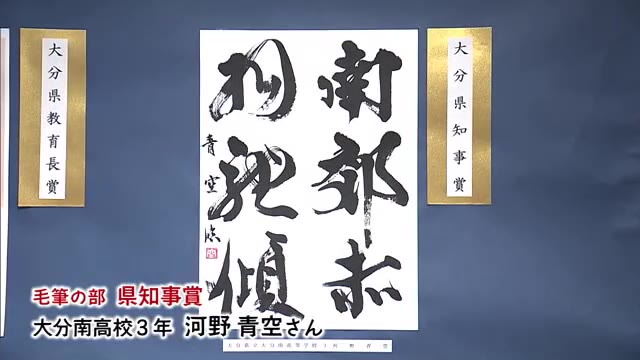 大分県知事賞
南郊
傾
青空臨
大分県教育長賞
毛筆の部 県知事賞
大分南高校3年 河野 青空さん